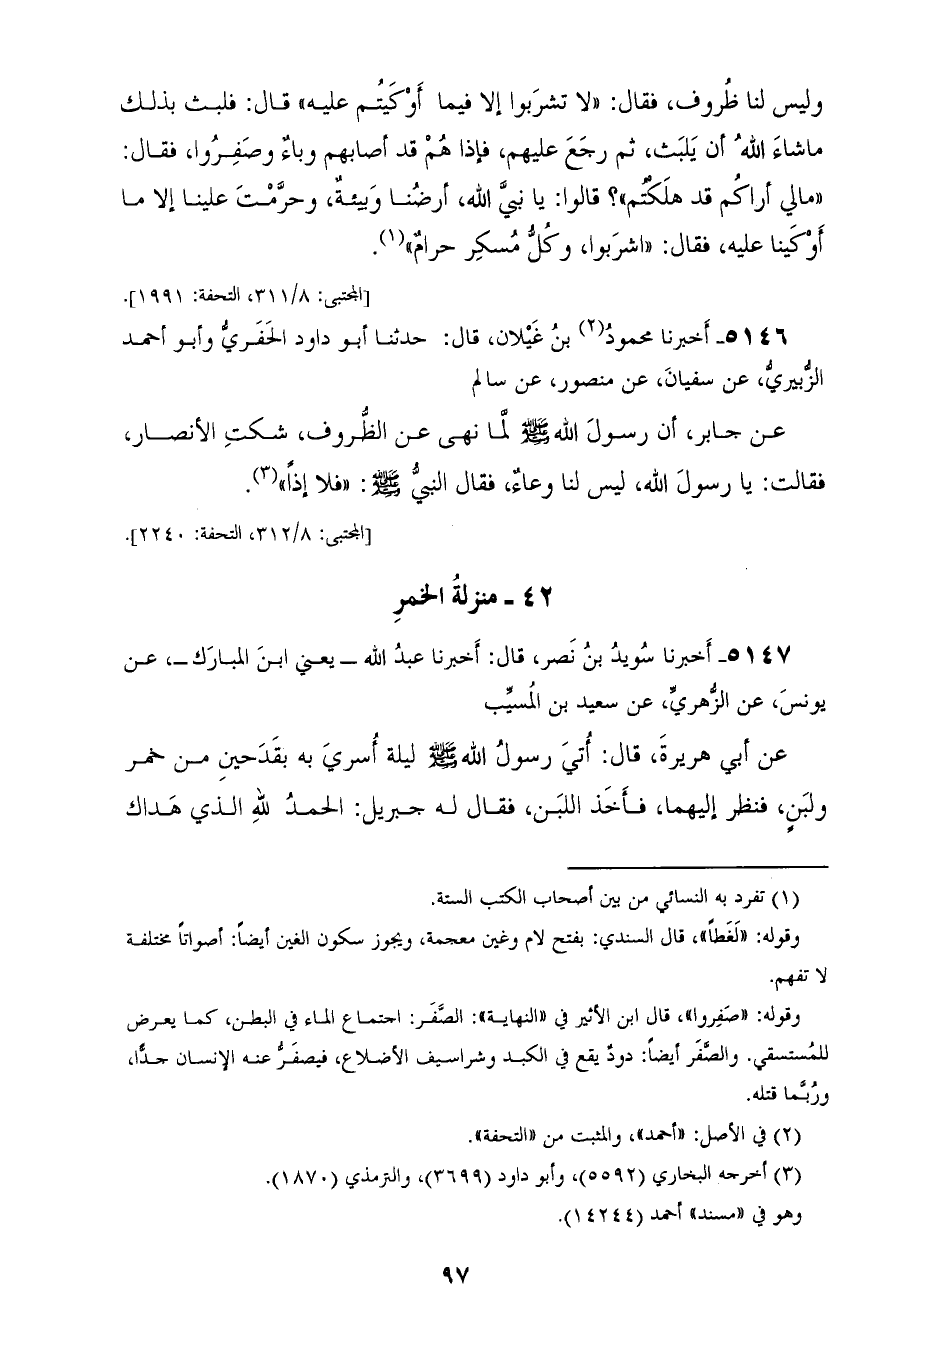 وليس لنا ظُروف، فقال: «لا تشرَبوا إلا فيما أَوْكَيتُم عليه» قال: فلبث بذلك
ماشاءَ اللهُ أن يَلبَث، ثم رجَعَ عليهم، فإذا هُمْ قد أصابهم وباءٌ وصَفِرُوا، فقال:
«مالي أراكُم قد هلَكتُم»؟ قالوا: يا نبيَّ الله، أرضُنا وَبيئةٌ، وحرَّمْتَ علينا إلا ما
أَوْكَينا عليه، فقال: «اشرَبوا، وكُلُّ مُسكِر حرامٌ»(١).
[المجتبى: ٣١١/٨، التحفة: ١٩٩١].
٥١٤٦ـ أخبرنا محمودُ(٢) بنُ غَيْلان، قال: حدثنا أبو داود الحَفَريُّ وأبو أحمد
الزُّبيريُّ، عن سفيانَ، عن منصور، عن سالم
عن جابر، أن رسولَ الله ﷺ لمَّا نهى عن الظُّروف، شكتِ الأنصار،
فقالت: يا رسولَ الله، ليس لنا وعاءٌ، فقال النبيُّ ﷺ: «فلا إذاً»(٣).
[المجتبى: ٣١٢/٨، التحفة: ٢٢٤٠].
٤٢ ـ منزلةُ الخمرِ
٥١٤٧ـ أَخبرنا سُويدُ بنُ نَصر، قال: أَخبرنا عبدُ الله ــ يعني ابنَ المبارَك ــ، عن
يونسَ، عن الزُّهريِّ، عن سعيد بن المُسيِّب
عن أبي هريرةَ، قال: أُتيَ رسولُ الله ﷺ ليلة أُسريَ به بقَدَحينِ من خمر
ولبَنٍ، فنظر إليهما، فأخَذ اللبَن، فقال له جبريل: الحمدُ للهِ الذي هَداك
(١) تفرد به النسائي من بين أصحاب الكتب الستة.
وقوله: «لَغَطاً»، قال السندي: بفتح لام وغين معجمة، ويجوز سكون الغين أيضاً: أصواتاً مختلفة
لا تفهم.
وقوله: «صَفِروا»، قال ابن الأثير في «النهاية»: الصَّفَر: اجتماع الماء في البطن، كما يعرض
للمُستسقي. والصَّفَر أيضاً: دودٌ يقع في الكبد وشراسيف الأضلاع، فيصفَرُّ عنه الإنسان جدًّا،
ورُبَّما قتله.
(٢) في الأصل: «أحمد»، والمثبت من «التحفة».
(٣) أخرجه البخاري (٥٥٩٢)، وأبو داود (٣٦٩٩)، والترمذي (١٨٧٠).
وهو في «مسند» أحمد (١٤٢٤٤).
٩٧